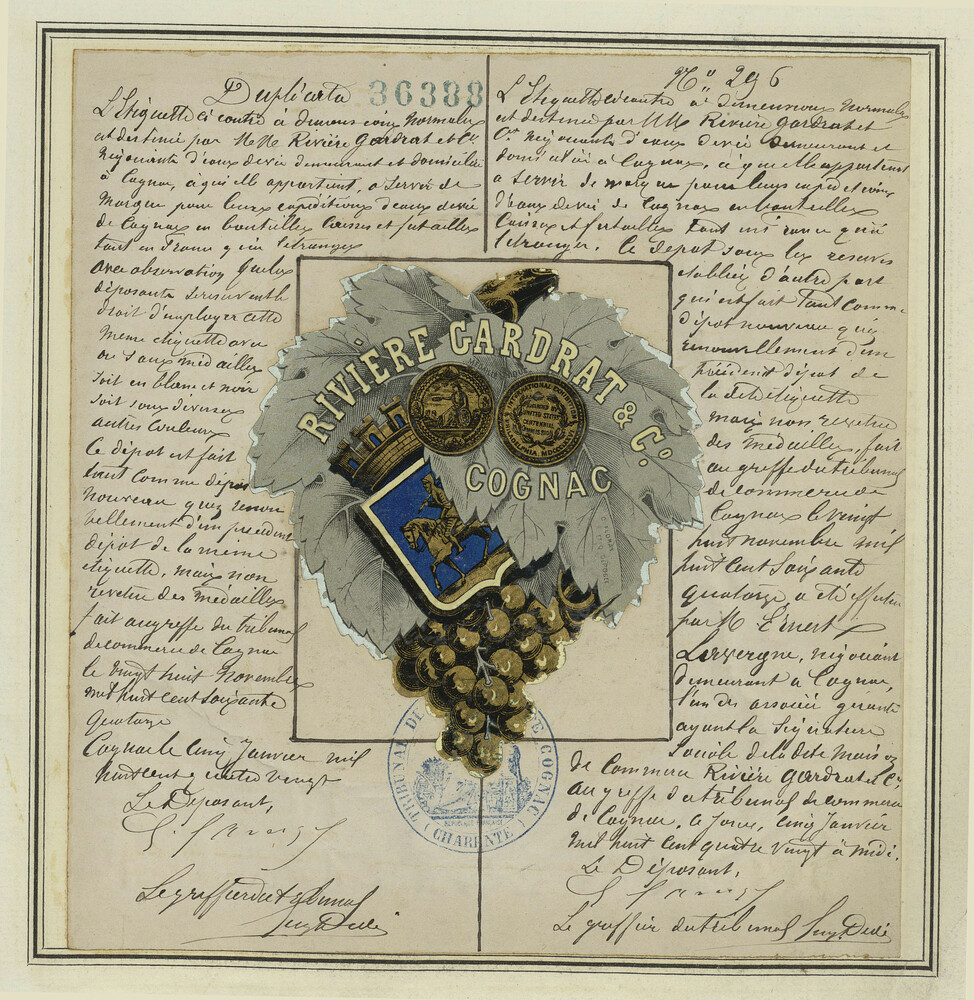 Duplicata 36388
L'Etiquette ci contre à dimensions Normales
est destinée par M.M. Rivière Gardrat et Cie
Négociants d'eaux devie demeurant et domiciliés
à Cognac, à qui elle appartient, a servir de
Marque pour leurs expéditions d'eaux devie
de Cognac en bouteilles Caisses et futailles
tant en France qu'en l'étranger
avec observation que les
déposants se reservent le
droit d'employer cette
même etiquette avec
ou sans médailles
soit en blanc et noir
soit sous diverses
autres couleurs
Ce dépot est fait
tant comme dépot
Nouveau que renou
vellement d'un precedent
dépôt de la meme
etiquette, mais non
revetue des Médailles
fait au greffe du tribunal
de commerce de Cognac
le vingt huit Novembre
mil huit cent soixante
quatorze
Cognac le cinq Janvier mil
huit cent quatre vingt
Le Déposant,
Le greffier du tribunal
No 296
L'Etiquette ci contre à dimensions Normales
est destinée par MM Rivière Gardrat et
Cie Négociants d'eaux devie demeurant et
domiciliés à Cognac, à qui elle appartient
a servir de marque pour leurs expéditions
d'eaux devie de Cognac en bouteilles
Caisses et futailles tant en France qu'en
l'étranger. Ce dépot sous les reserves
etablies d'autre part
qui est fait tant comme
dépot nouveau que
renouvellement d'un
Précédent dépot de
la dite étiquette
mais non revetue
des médailles, fait
au greffe du tribunal
de commerce de
Cognac le vingt
huit novembre mil
huit cent soixante
quatorze a été effectué
par M. Ernest
Lavergne, négociant
demeurant à Cognac,
l'un des associés gerants
ayant la signature
sociale de la dite maison
de Commerce Rivière Gardrat et Cie
au greffe du tribunal de commerce
de Cognac, ce jour, cinq Janvier
mil huit cent quatre vingt à midi.
Le Déposant,
Le greffier du tribunal
RIVIÈRE GARDRAT & Co.
COGNAC
INTERNATIONAL EXHIBITION
PHILADELPHIA MDCCCLXXVI
AWARDED BY
UNITED STATES
CENTENNIAL
COMMISSION
TRIBUNAL DE COMMERCE DE COGNAC
(CHARENTE)